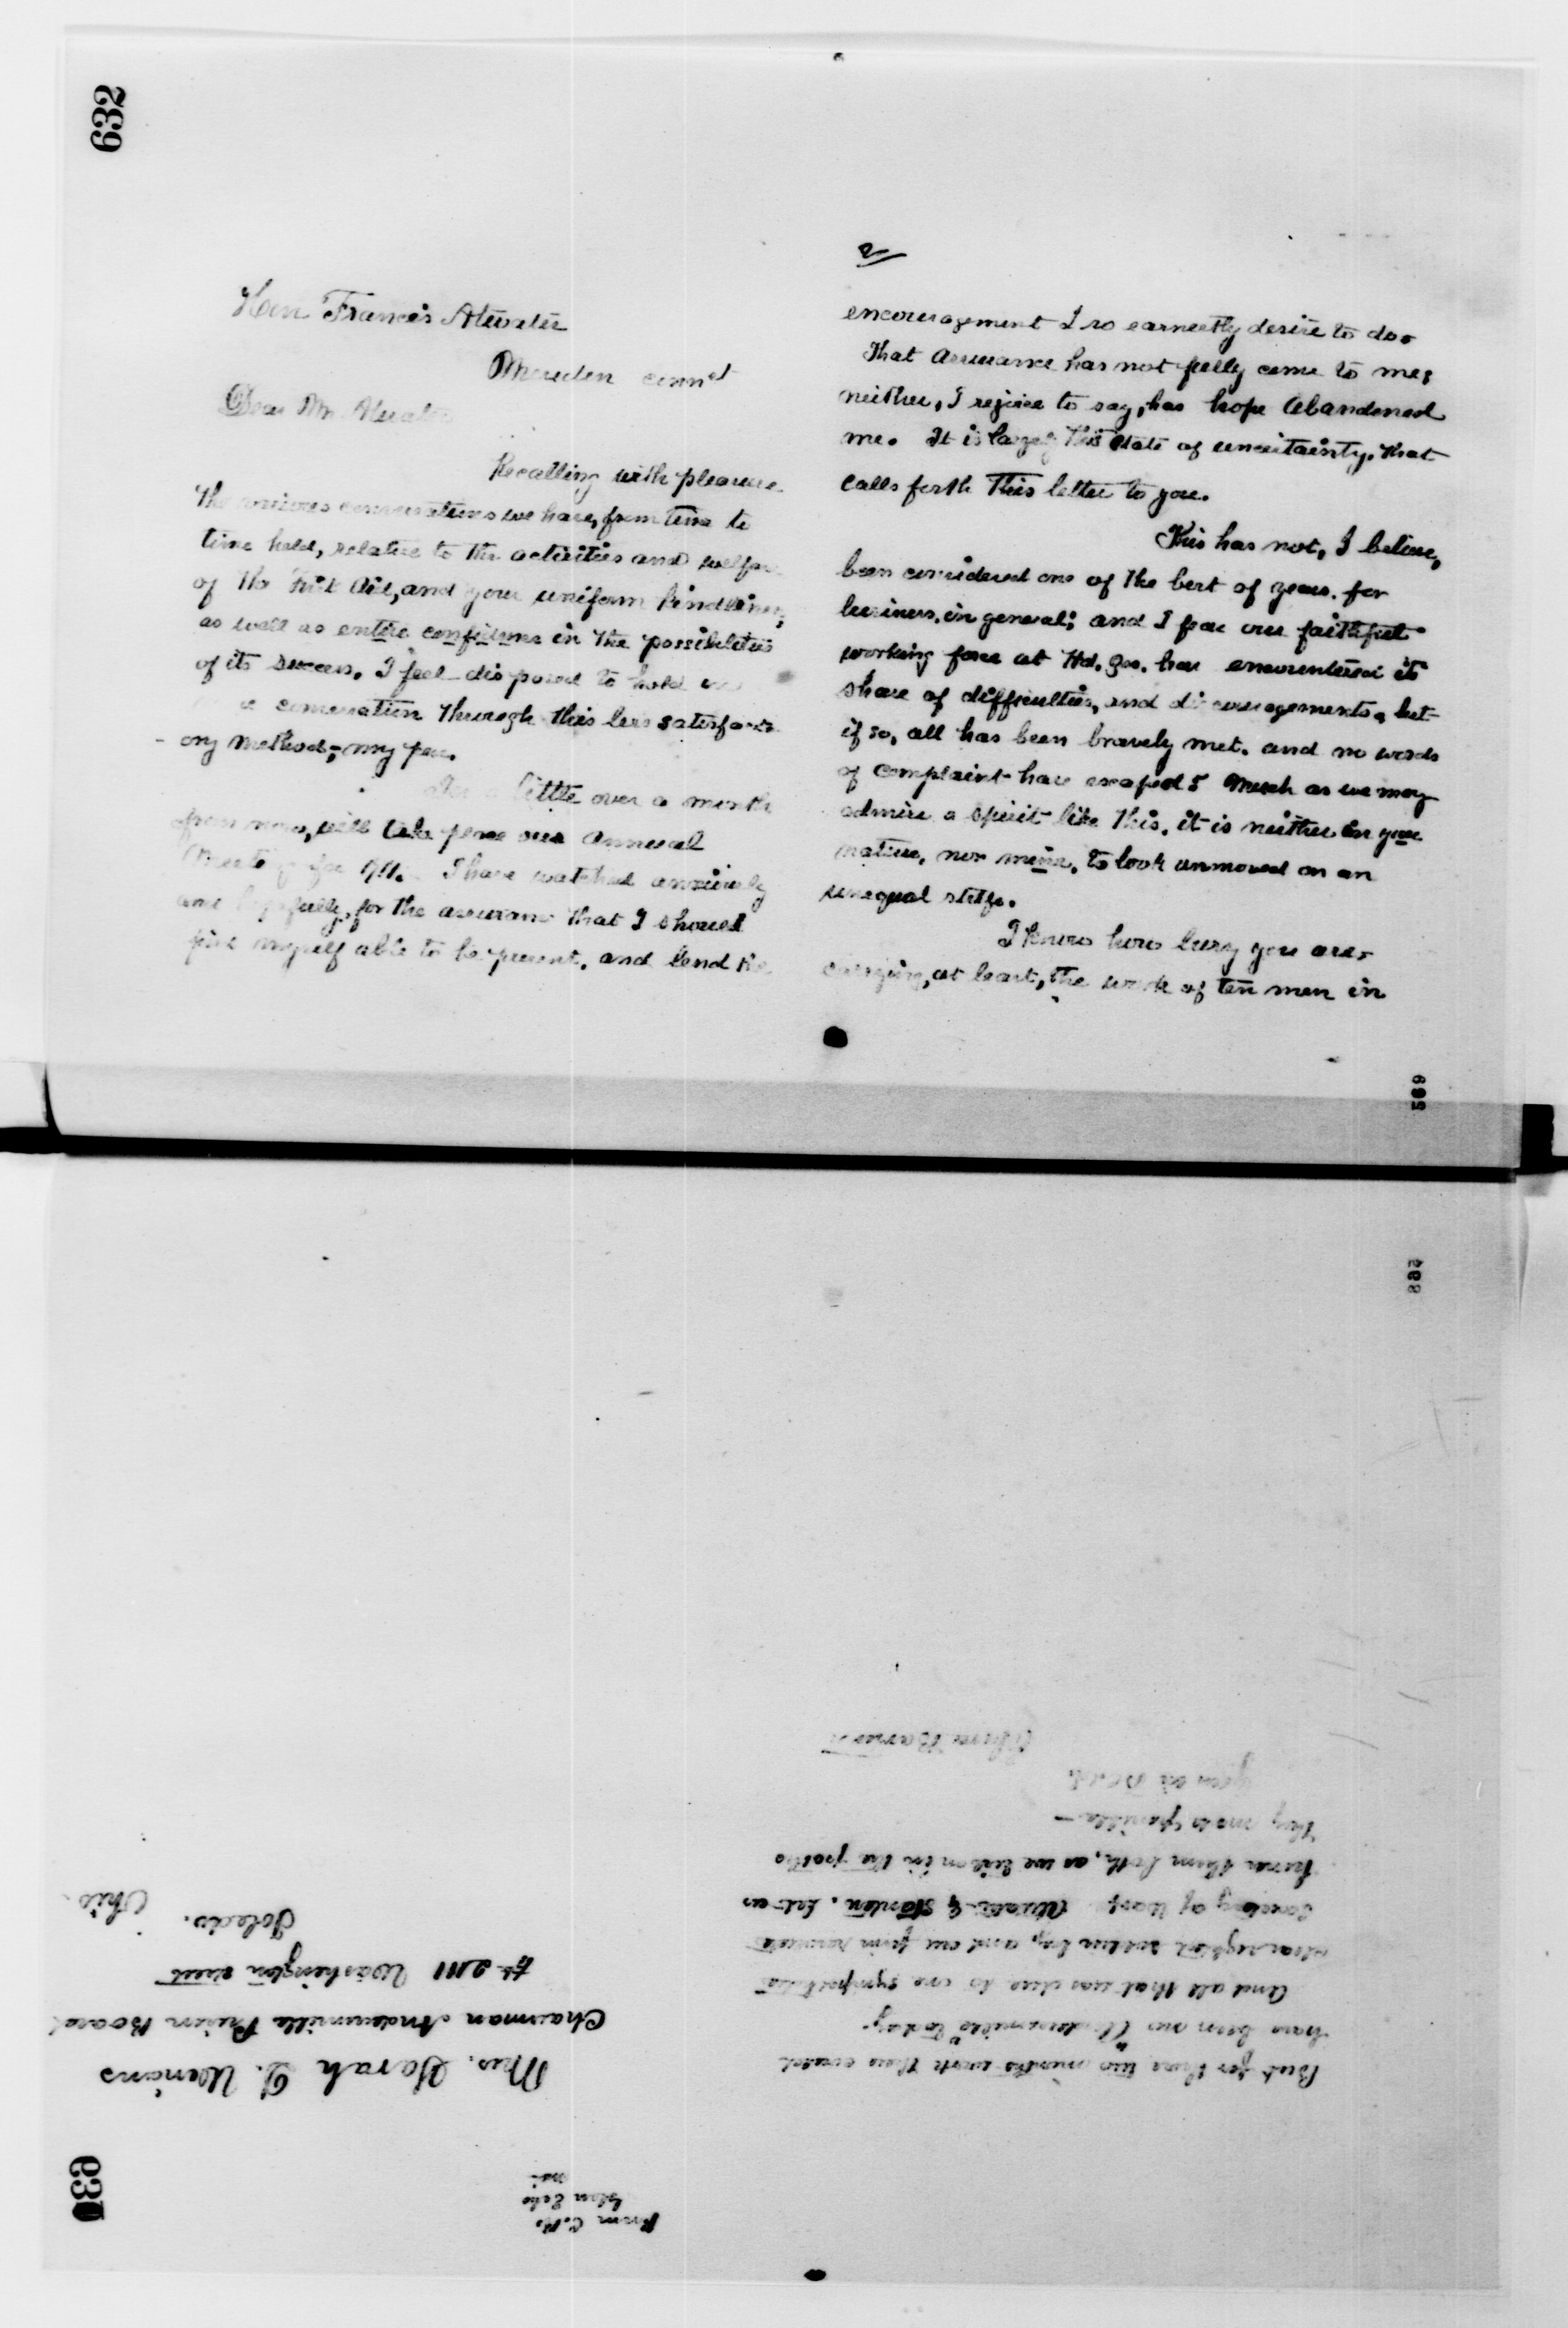 632
Hon Francis Atwater
Meriden connct
Dear Mr. Atwater
Recalling with pleasure
the various conversations we have, from time to
time held, relative to the activities and welfare
of the First Aid, and your uniform kindliness,
as well as entire confidence in the possibilities
of its success, I feel disposed to hold
a conversation through this less satisfact-
ory method; my pen.
In a little over a month
from now, will take place our annual
Meeting for 1911. I have watched anxiously
and hopefully, for the assurance that I should
find myself able to be present, and lend the
2
encouragement I so earnestly desire to do.
That assurance has not fully come to me;
neither, I rejoice to say, has hope abandoned
me. It is largely this state of uncertainty, that
calls forth this letter to you.
This has not, I believe,
been considered one of the best of years, for
business, in general; and I fear our faithful
working force at Hd. Qrs. has encountered its
share of difficulties, and discouragements, but
if so, all has been bravely met, and no words
of complaint have escaped. Much as we may
admire a spirit like this, it is neither in your
nature, nor mine, to look unmoved on an
unequal strife.
I know how busy you are,
carrying, at least, the work of ten men in
569
568
631
From C.B.
Glen Echo
Md
Mrs. Sarah D. Winans
Chairman Andersonville Prison Board
# 2111 Washington street
Toledo.
Ohio.
But for those two months work there would
have been no "Andersonville" today.
And all that was due to one sympathetic
clear sighted soldier boy, and one firm
Secretary of War. Atwater & Stanton. Let us
honor them both, as we listen in the
They made possible—
Yours as ever
Clara Barton